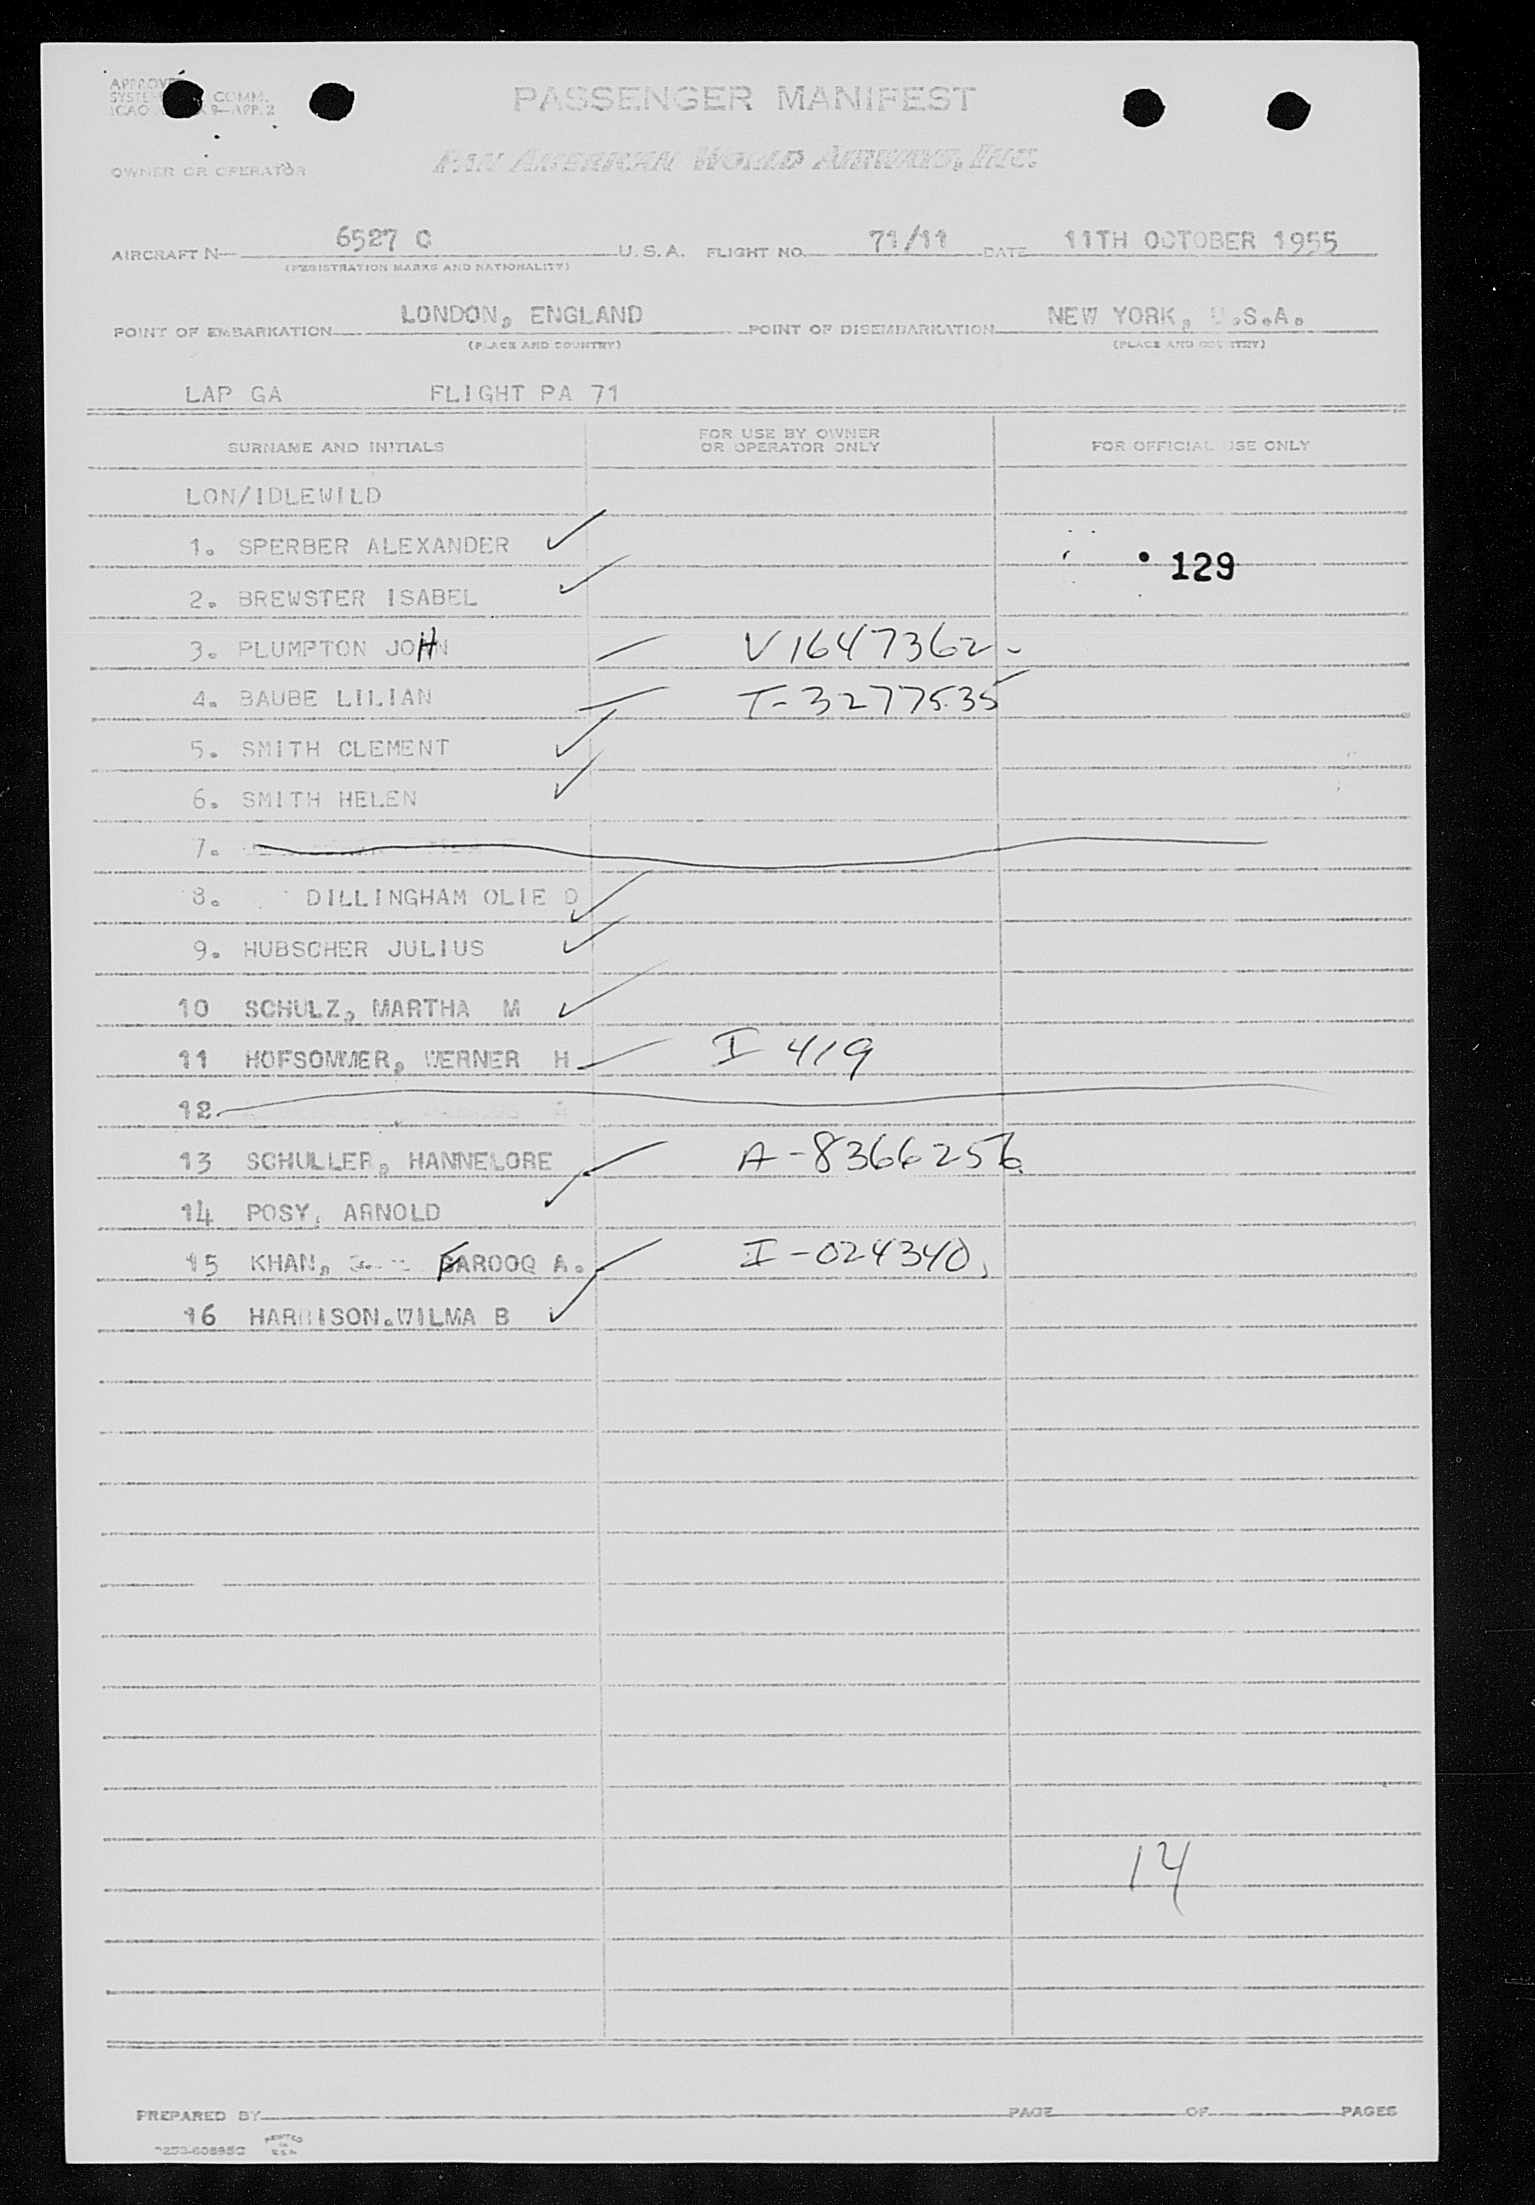 PASSENGER MANIFEST
OWNER OR OPERATOR PAN AMERICAN WORLD AIRWAYS, INC.
AIRCRAFT N 6527 C U.S.A. FLIGHT NO. 71/11 DATE 11TH OCTOBER 1955
(REGISTRATION MARKS AND NATIONALITY)
POINT OF EMBARKATION LONDON, ENGLAND POINT OF DISEMBARKATION NEW YORK, U.S.A.
(PLACE AND COUNTRY) (PLACE AND COUNTRY)
LAP GA FLIGHT PA 71
SURNAME AND INITIALS FOR USE BY OWNER OR OPERATOR ONLY FOR OFFICIAL USE ONLY
LON/IDLEWILD
1. SPERBER ALEXANDER
129
2. BREWSTER ISABEL
3. PLUMPTON JOHN V1647362-
4. BAUBE LILIAN T-3277535
5. SMITH CLEMENT
6. SMITH HELEN
7.
8. DILLINGHAM OLIE D
9. HUBSCHER JULIUS
10 SCHULZ, MARTHA M
11 HOFSOMMER, WERNER H I 419
12
13 SCHULLER, HANNELORE A-8366256
14 POSY, ARNOLD
15 KHAN, FAROOQ A. I-024340
16 HARRISON.WILMA B
14
PREPARED BY PAGE OF PAGES
PRINTED IN U.S.A.